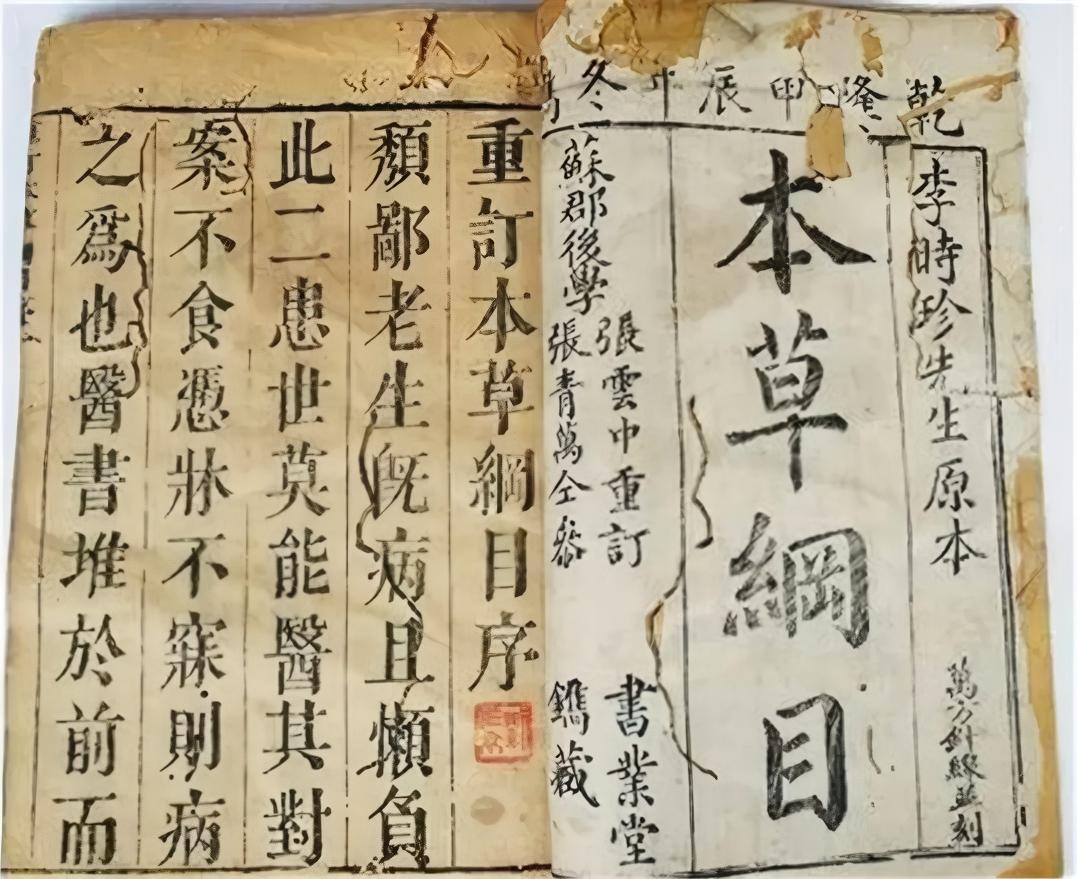 乾隆甲辰年冬
李時珍先生原本
萬方針線並刻
本草綱目
蘇郡後學
張雲中重訂
張青萬仝參
書業堂
鐫藏
重訂本草綱目序
頽鄙老生旣病且懶負
此二患世莫能醫其對
案不食憑牀不寐則病
之爲也醫書堆於前而